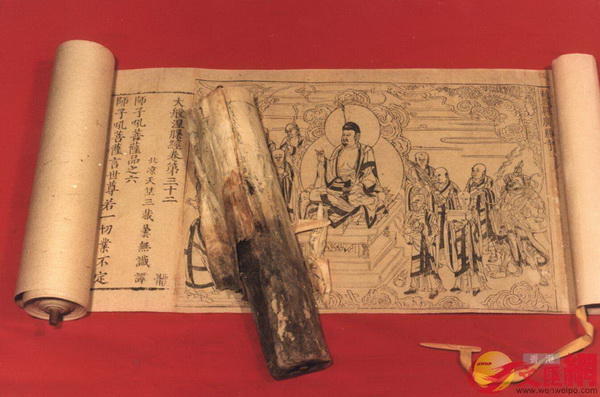 大般涅槃經卷第三十二
北涼天竺三藏曇無讖譯
師子吼菩薩品之六
師子吼菩薩言世尊若一切業不定
香港
文匯網
www.wenweipo.com